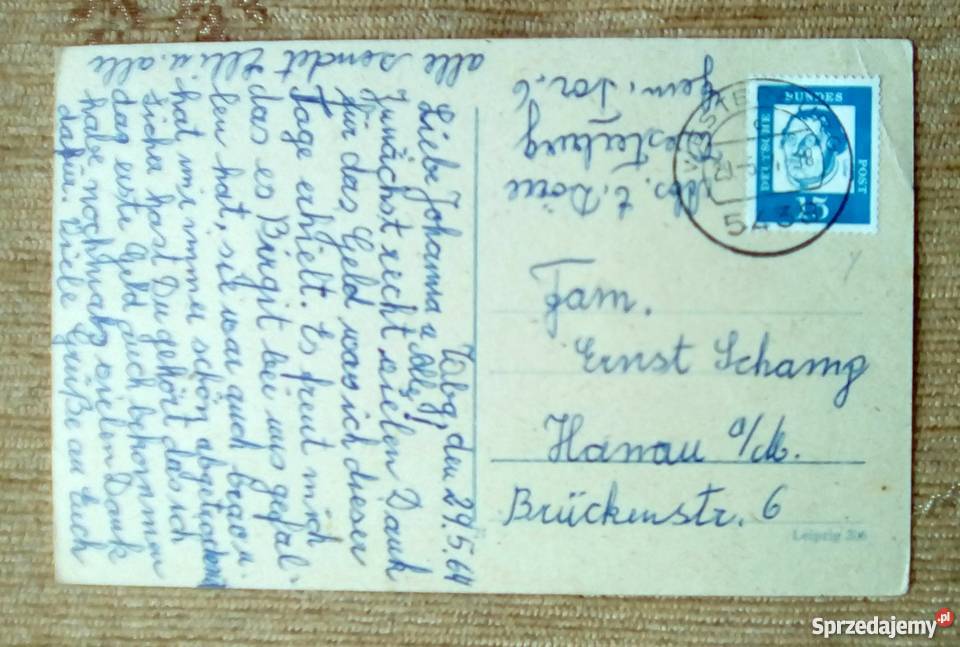 Wbg, den 29.5.64
Liebe Johanna u. Alle!
Zunächst recht vielen Dank
für das Geld was ich dieser
Tage erhielt. Es freut mich
das es Bingit bei uns gefal-
len hat, sie war auch brav u.
hat mir immer schön abgetrocknet
Sicher hast Du gehört das ich
das erst Geld auch bekommen
habe nochmals vielen Dank
dafür. Viele Grüße an Euch
alle sendet Elli u. alle
Abs. E.
Westerburg
Gem. Tor. 6
WESTERBURG
29.5.
-18
543
DEUTSCHE
BUNDES
POST
15
Fam.
Ernst Schamg
Hanau a/M.
Brückenstr. 6
Leipzig
Sprzedajemy.pl